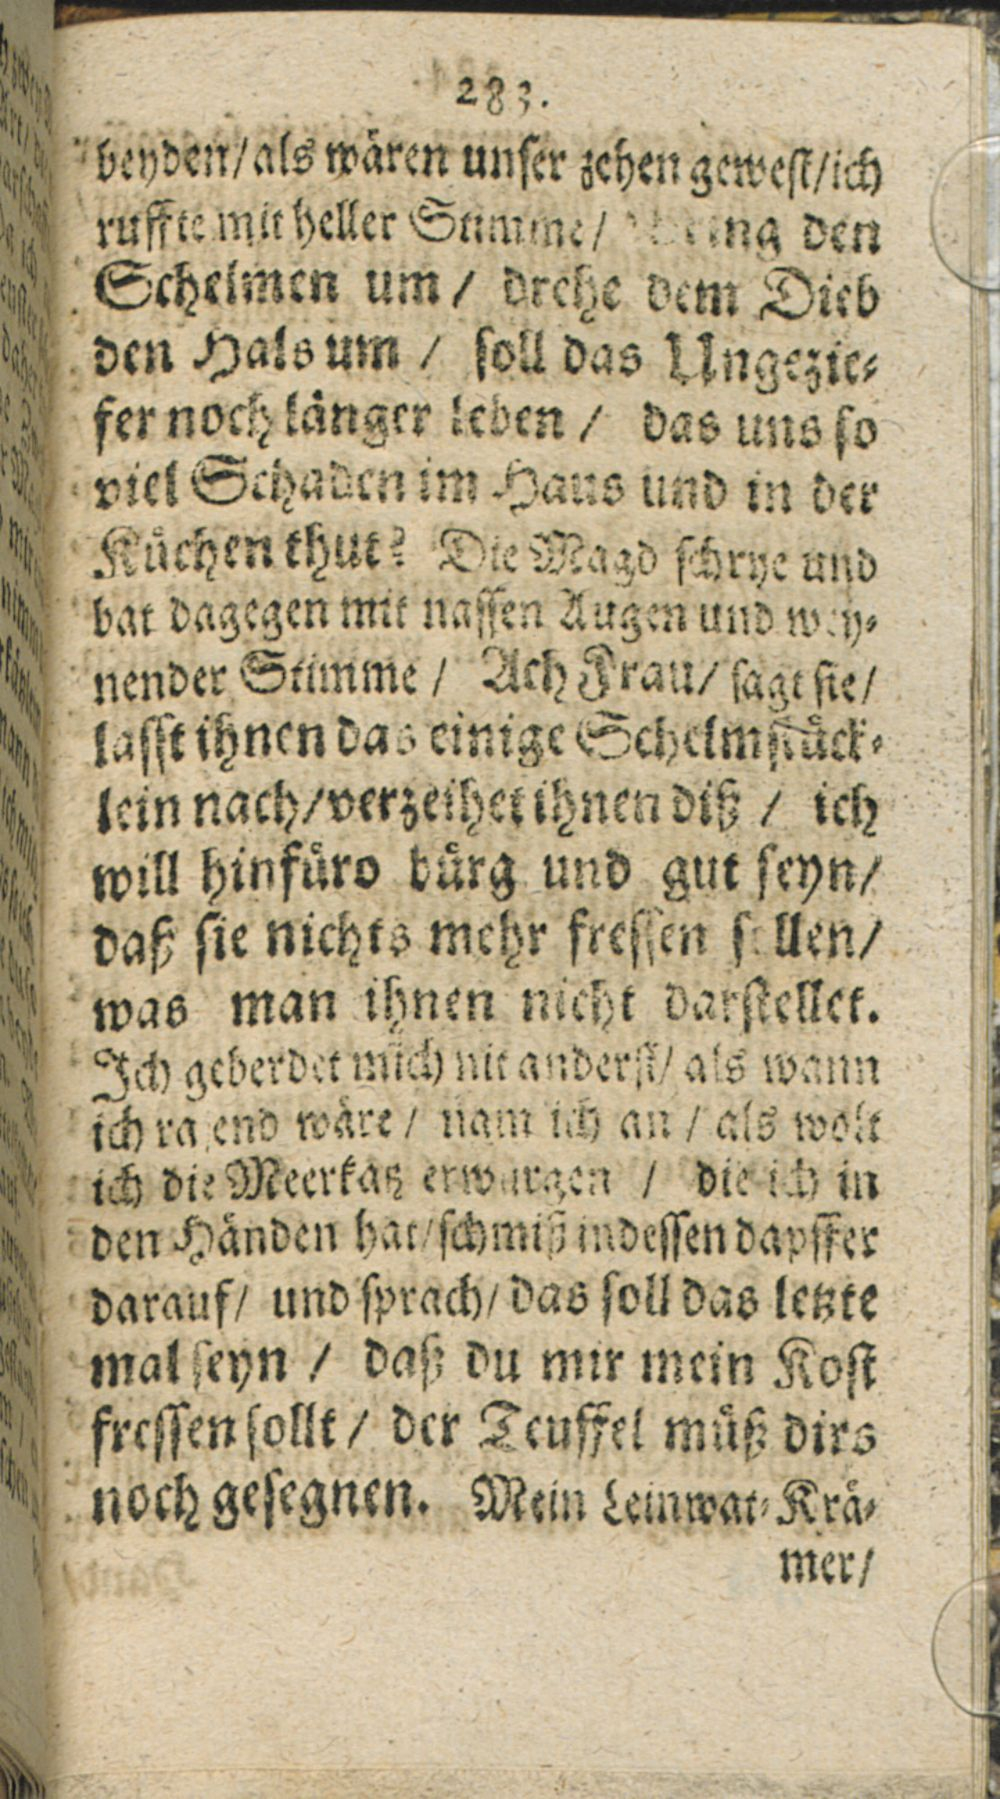 283.
beyden/als wären unser zehen gewest/ich
ruffte mit heller Stimme/ den
Schelmen um / drehe dem Dieb
den Hals um / soll das Ungezie-
fer noch länger leben / das uns so
viel Schaden im Haus und in der
Küchen thut? Die Magd schrye und
bat dagegen mit nassen Augen und wey-
nender Stimme / Ach Frau/ sagt sie/
lasst ihnen das einige Schelmstück-
lein nach/verzeihet ihnen diß / ich
will hinfüro bürg und gut seyn/
daß sie nichts mehr fressen sollen/
was man ihnen nicht darstellet.
Ich geberdet mich nit anderst/ als wann
ich rasend wäre / nam ich an / als wolt
ich die Meerkatz erwürgen / die ich in
den Händen hat/schmiß indessen dapffer
darauf/ und sprach/ das soll das letzte
mal seyn / daß du mir mein Kost
fressen sollt / der Teuffel müß dirs
noch gesegnen. Mein Leinwat-Krä-
mer/